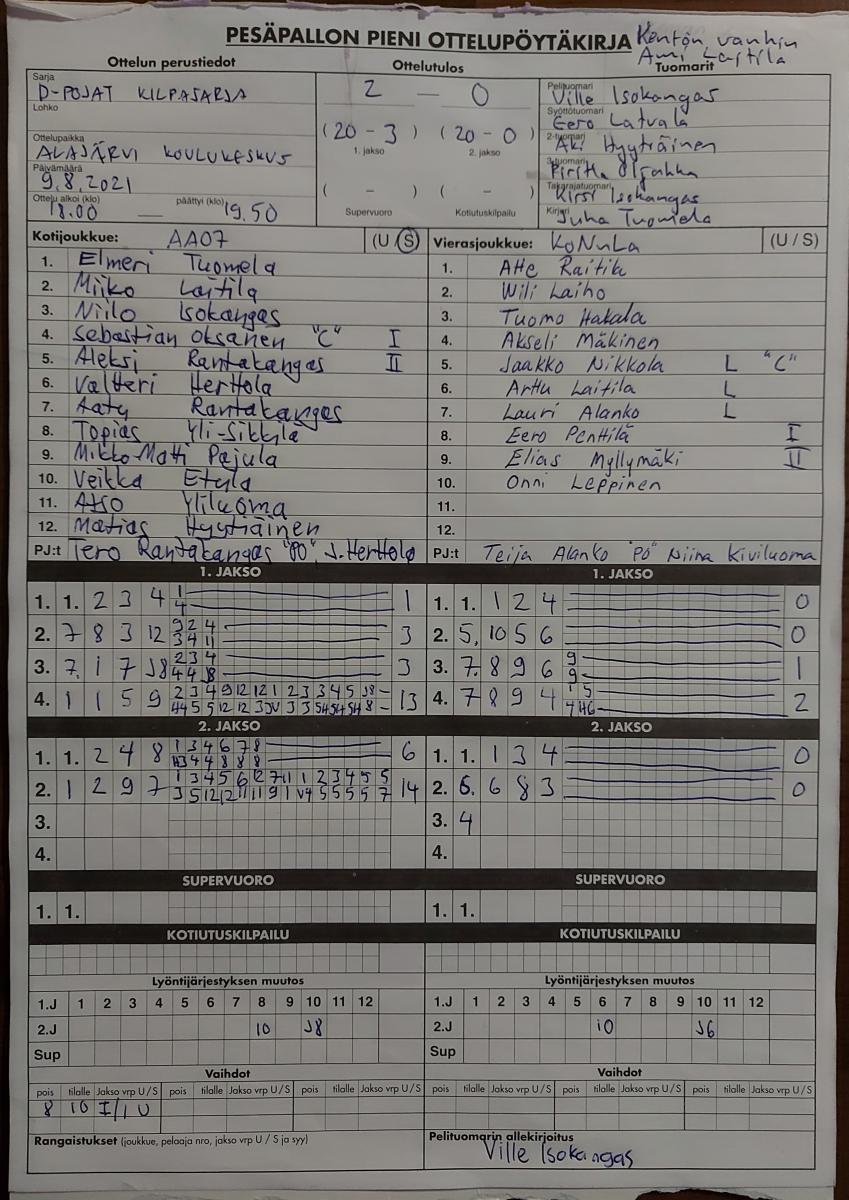 PESÄPALLON PIENI OTTELUPÖYTÄKIRJA
Kentän vanhin
Ami Laitila
Ottelun perustiedot
Ottelutulos
Tuomarit
Sarja
D-POJAT KILPASARJA
Lohko
Ottelupaikka
ALAJÄRVI KOULUKESKUS
Päivämäärä
9.8.2021
Ottelu alkoi (klo) päättyi (klo)
18.00 — 19.50
2 — 0
(20 - 3) (20 - 0)
1. jakso 2. jakso
( - ) ( - )
Supervuoro Kotiutuskilpailu
Pelituomari
Ville Isokangas
Syöttötuomari
Eero Latvala
2-tuomari
Aki Hyyträinen
3-tuomari
Takarajatuomari
Kirsi Isokangas
Kirjuri
Juha Tuomela
Kotijoukkue: AA07 (U / S)
1. Elmeri Tuomela
2. Miiko Laitila
3. Niilo Isokangas
4. Sebastian Oksanen "C" I
5. Aleksi Rantakangas II
6. Valtteri Herttola
7. Aatu Rantakangas
8. Topias Yli-Sikkilä
9. Mikko-Matti Pajula
10. Veikka Etula
11. Atso Yliluoma
12. Matias Hyytiäinen
PJ:t Tero Rantakangas "PO", J. Herttola
Vierasjoukkue: KoNuLa (U / S)
1. Atte Raitik
2. Wili Laiho
3. Tuomo Hakala
4. Akseli Mäkinen
5. Jaakko Nikkola L "C"
6. Arttu Laitila L
7. Lauri Alanko L
8. Eero Penttilä I
9. Elias Myllymäki II
10. Onni Leppinen
11.
12.
PJ:t Teija Alanko "PO" Niina Kiviluoma
1. JAKSO
1. 1. 2 3 4 1
4 1
2. 7 8 3 12 9 2 4
3 4 11 3
3. 7. 1 7 J8 2 3 4
4 4 J8 3
4. 1 1 5 9 2 3 4 9 12 12 1 2 3 3 4 5 J8 - 13
2. JAKSO
1. 1. 2 4 8 1 3 4 6 7 8 6
2. 1 2 9 7 1 3 4 5 6 12 7 11 1 2 3 4 5 5 14
3.
4.
SUPERVUORO
1. 1.
KOTIUTUSKILPAILU
Lyöntijärjestyksen muutos
1.J 1 2 3 4 5 6 7 8 9 10 11 12
2.J 10 J8
Sup
Vaihdot
pois tilalle Jakso vrp U / S pois tilalle Jakso vrp U / S pois tilalle Jakso vrp U / S
8 10 I/1 U
Rangaistukset (joukkue, pelaaja nro, jakso vrp U / S ja syy)
1. JAKSO
1. 1. 1 2 4 0
2. 5, 10 5 6 0
3. 7. 8 9 6 9
9 1
4. 7 8 9 4 2
2. JAKSO
1. 1. 1 3 4 0
2. 5. 6 8 3 0
3. 4
4.
SUPERVUORO
1. 1.
KOTIUTUSKILPAILU
Lyöntijärjestyksen muutos
1.J 1 2 3 4 5 6 7 8 9 10 11 12
2.J 10 J6
Sup
Vaihdot
pois tilalle Jakso vrp U / S pois tilalle Jakso vrp U / S pois tilalle Jakso vrp U / S
Pelituomarin allekirjoitus
Ville Isokangas